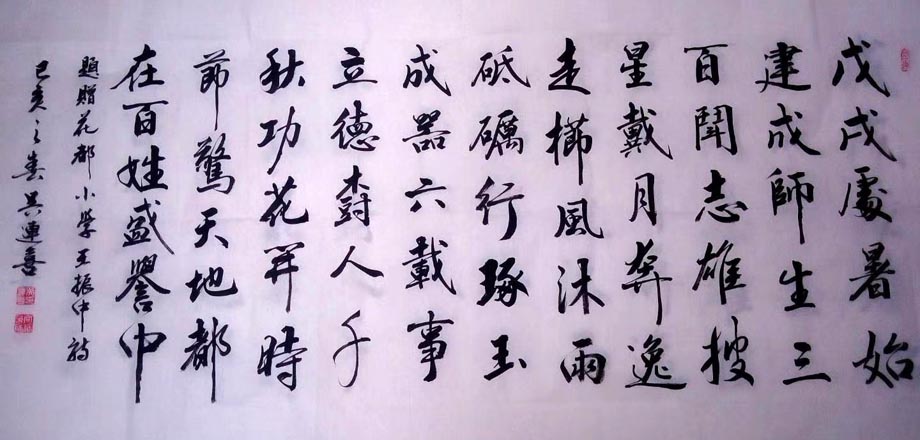 戊戌處暑始
建成師生三
百鬥志雄披
星戴月奔逸
走櫛風沐雨
砥礪行琢玉
成器六載事
立德樹人千
秋功花開時
節驚天地都
在百姓盛譽中
題贈花都小學王振中詩
己亥之春吴連喜